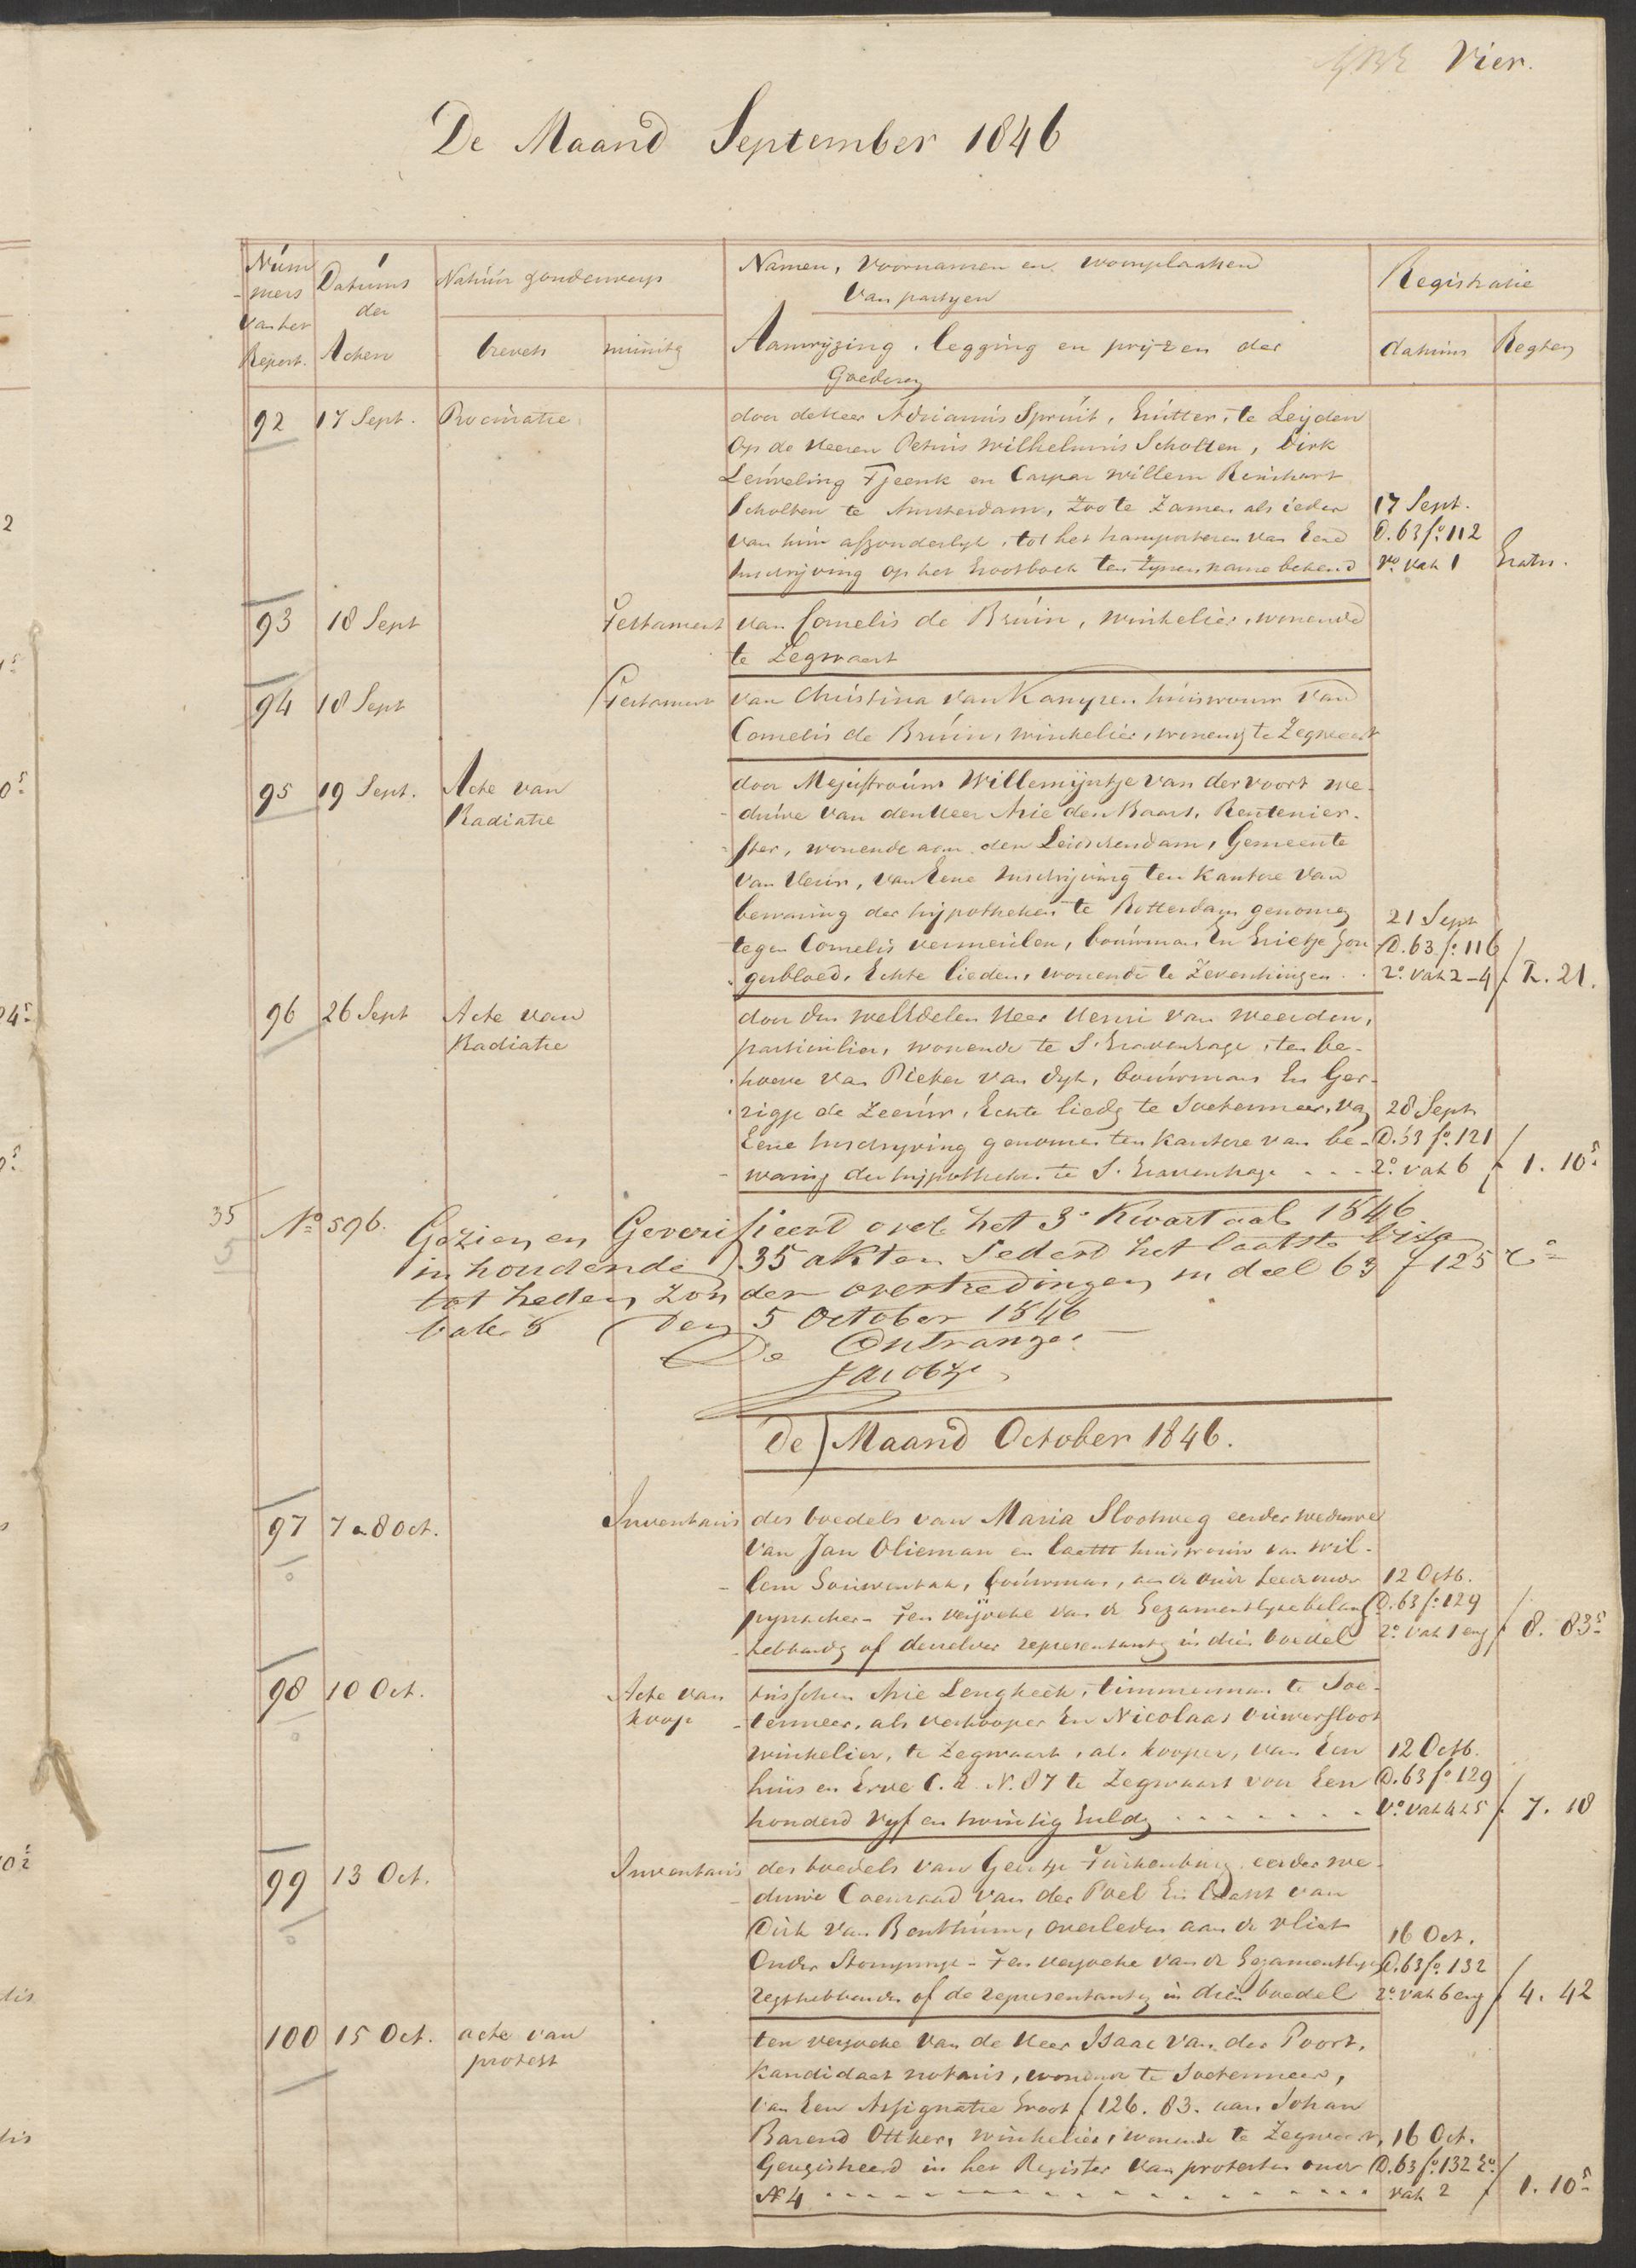 Vier.
De Maand September 1846
Num
mers
van het
Repert.
Datums
der
Acten
Natuur en onderwerp
brevets
minuts
Namen, voornamen en woonplaatsen
van partyen
Aanwyzing, legging en pryzen der
Goederen
Registratie
datums
Regten
92 17 Sept. Procuratie
door de Heer Adrianus Spruit, te Leyden
Op de Heeren Petrus Wilhelmus Scholten, Dirk
Leuveling Tjeenk en Caspar Willem Reinhart
Scholten te Amsterdam, Zoo te Zamen als ieder 17 Sept.
van hun afzonderlyk, tot het transporteren van Eene D. 63 fo. 112
Inschryving op het Grootboek ten zynen name bekend vo. vak 1 Gratis.
93 18 Sept Testament van Cornelis de Bruin, winkelier, wonende
te Zegwaart
94 18 Sept Testament van Christina van Kampen huisvrouw van
Cornelis de Bruin, winkelier, wonend te Zegwaart
95 19 Sept. Acte van
Radiatie
door Mejufvrouw Willemijntje van der Voort we-
duwe van den Heer Arie den Baars, Rentenier-
ster, wonende aan den Leidschendam, Gemeente
van Veur, van Eene Inschryving ten Kantore van
bewaring der hypotheken te Rotterdam genomen 21 Sept
tegen Cornelis Vermeulen, bouwman En Grietje Jon D. 63 fo. 116
gerbloed, Echte lieden, wonende te Zevenhuizen 2o. vak 2-4 f 2. 21.
96 26 Sept Acte van
Radiatie
door den WelEdelen Heer Henri van Weerden,
particulier, wonende te S. Gravenhage, ten be-
hoeve van Pieter van Dyk, bouwman En Ger-
rigje de Zeeuw, Echte lieden te Soetermeer, van 28 Sept
Eene Inschryving genomen ten Kantore van be- D. 63 fo. 121
waring der hypotheken te S. Gravenhage 2o. vak 6 f 1. 10 5
35
5
No. 596. Gezien en Geverifieerd over het 3e Kwartaal 1846
inhoudende 35 akten sederd het laatste visa
tot heden, zonder overtredingen in deel 63 f 125 vo
vak 8 Den 5 October 1846
De Ontvanger
Jacobze
De Maand October 1846.
97 7 en 8 Oct. Inventaris des boedels van Maria Slootweg eerder weduwe
van Jan Olieman en laatst huisvrouw van Wil-
lem Gouwentak, bouwman, aan de 12 Octb.
Ten verzoeke van de Gezamentlyke belang D. 63 fo. 129
hebbende of derzelver representanten in dien boedel 2o. vak 1 env f 8. 83 5
98 10 Oct. Acte van
koop
tusschen Arie Lengkeek, timmerman te Soe-
termeer, als verkooper En Nicolaas Ouwersloot
winkelier, te Zegwaart, als kooper, van Een 12 Octb.
huis en Erve C. 2 N. 87 te Zegwaart voor Een D. 63 fo. 129
honderd vyf en twintig Guld. vo. vak 4 & 5 f 7. 18
99 13 Oct. Inventaris des boedels van Geertje eerder we-
duwe Coenraad van der Poel En Laatst van
Dirk van Benthum, overleden aan de vliet 16 Oct.
Onder Stompwyk - Ten verzoeke van de Gezamentlyke D. 63 fo. 132
regthebbenden of de representanten in dien boedel 2o. vak 6 env f 4. 42
100 15 Oct. acte van
protest
ten verzoeke van de Heer Isaac van der Poort,
Kandidaat notaris, wonende te Soetermeer,
van Een Assignatie Groot f 126. 83. aan Johan
Barend Ottker, winkelier, wonende te Zegwaart, 16 Oct.
Geregistreerd in het Register van protesten onder D. 63 fo. 132 2o.
N 4 vak 2 f 1. 10 5